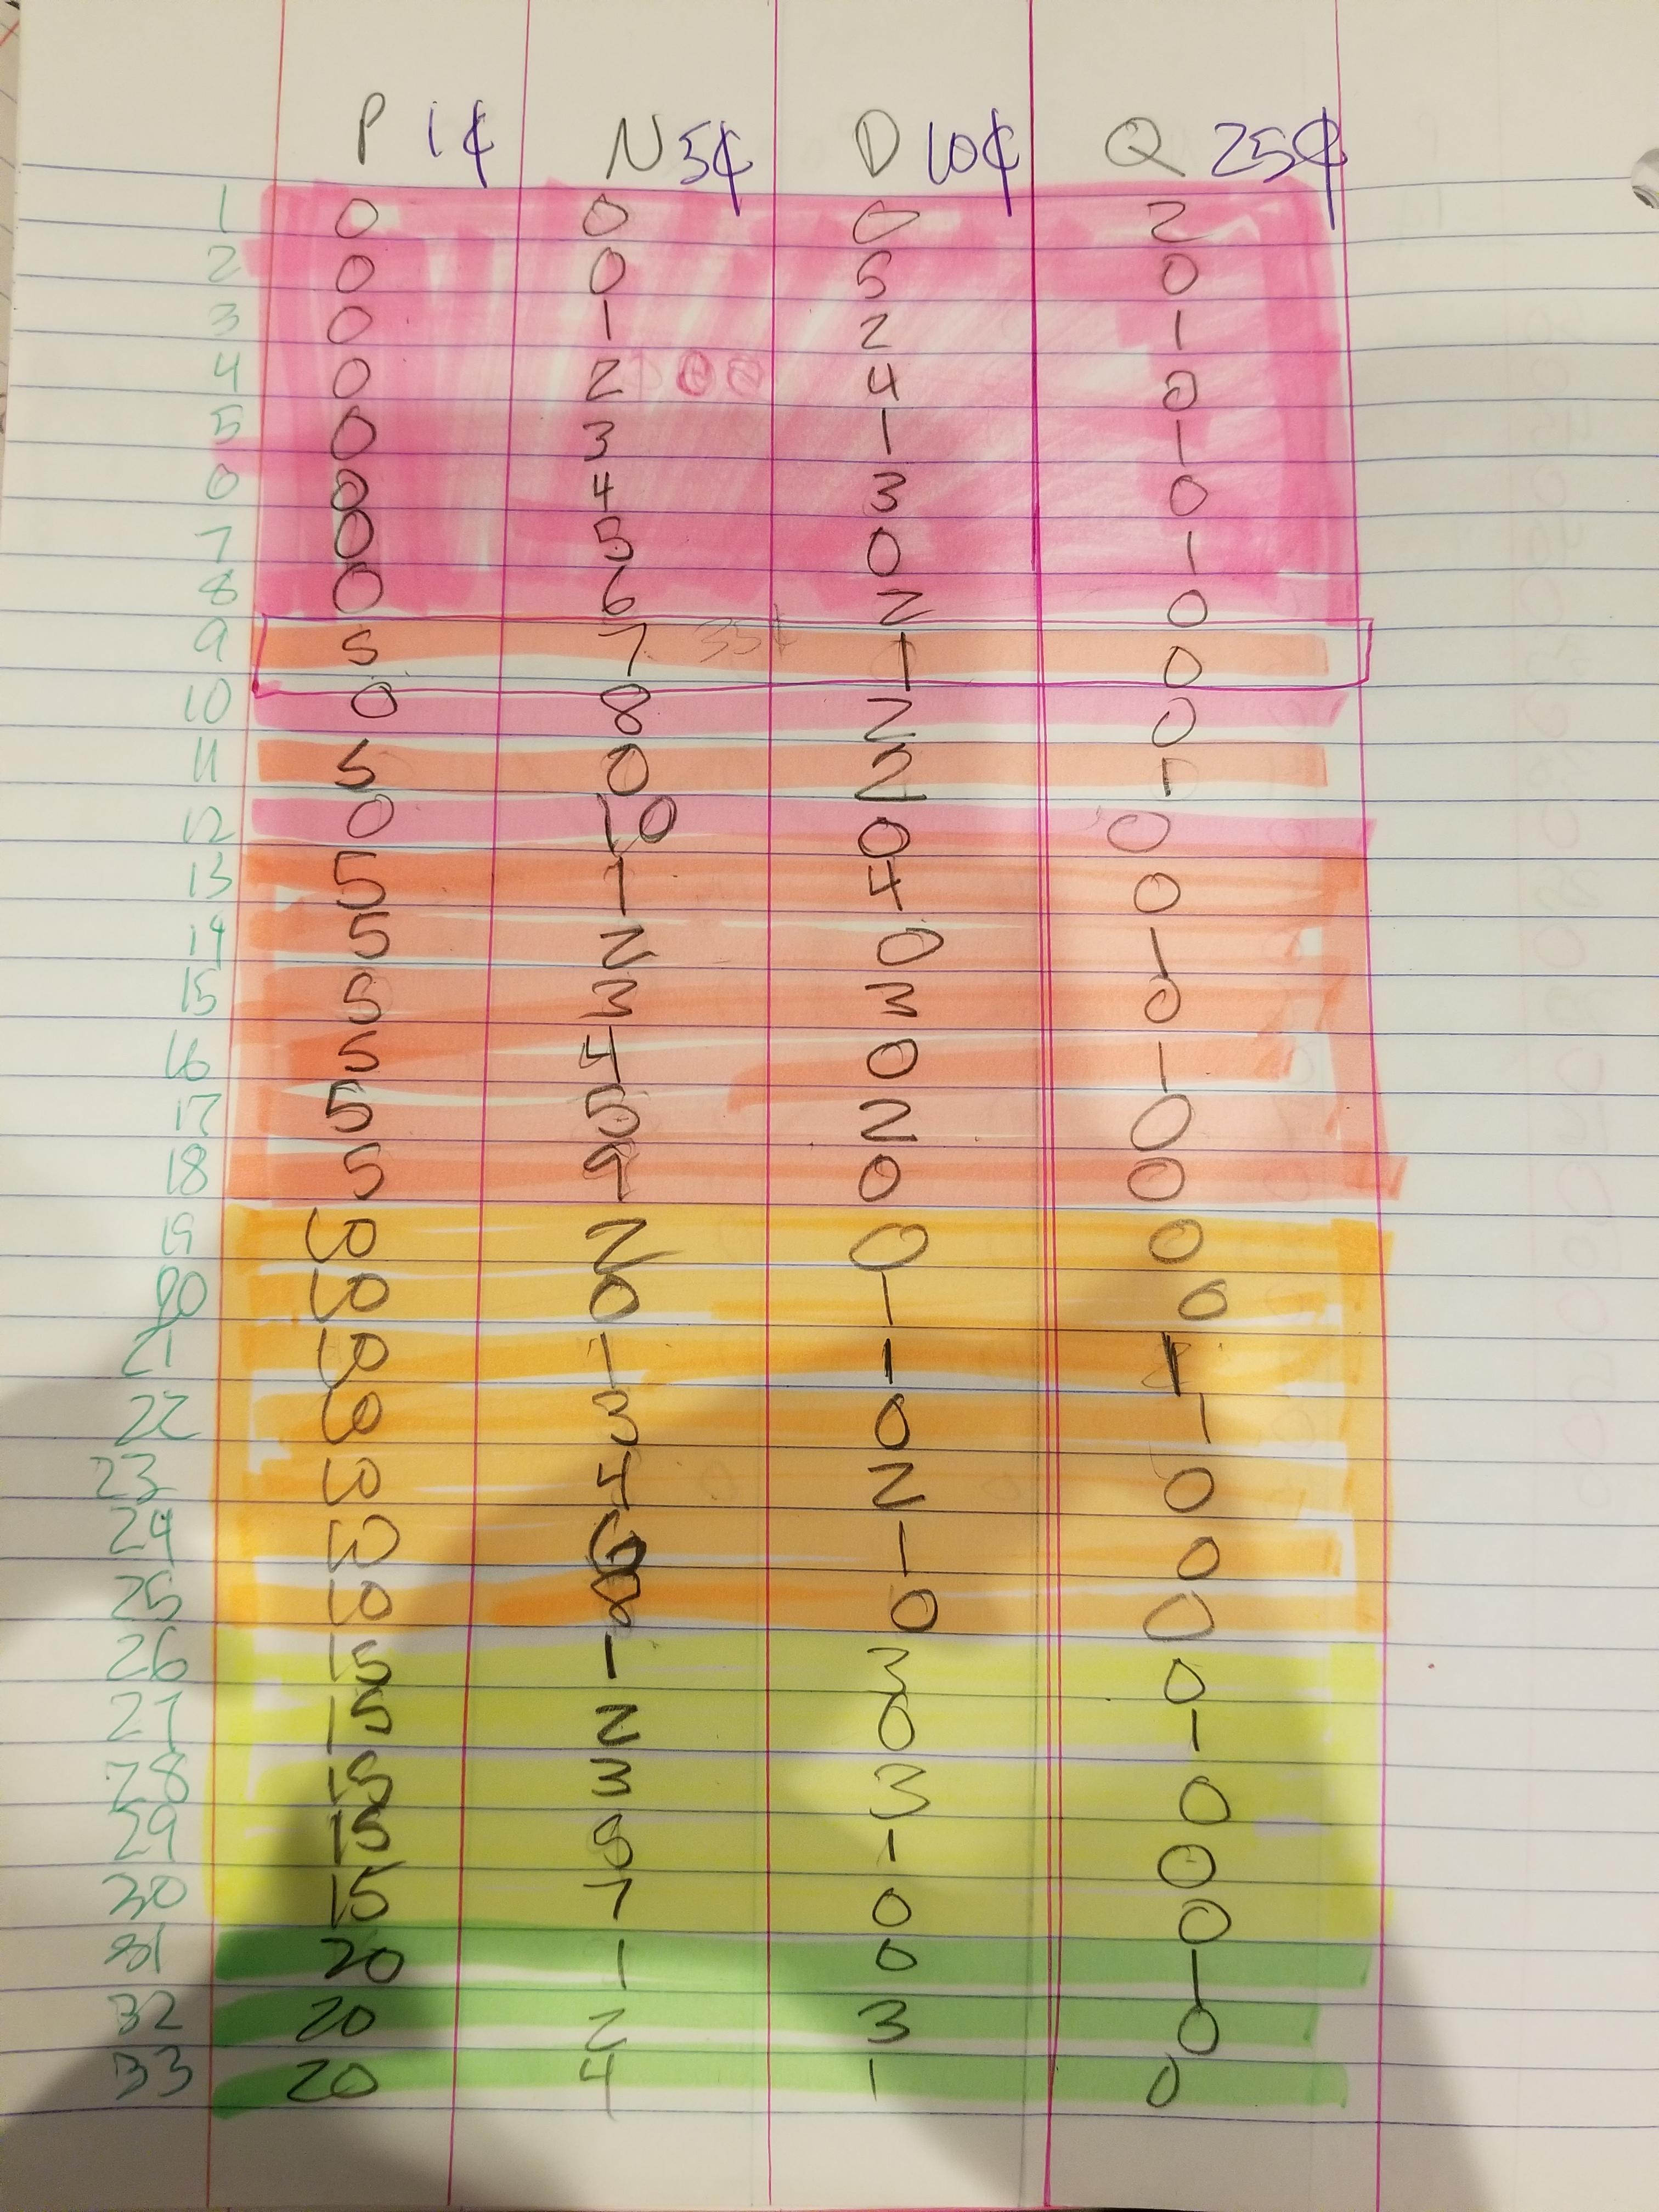 P 1¢ N 5¢ D 10¢ Q 25¢
1 0 0 0 2
2 0 0 5 0
3 0 1 2 1
4 0 2 4 0
5 0 3 1 1
6 0 4 3 0
7 0 5 0 1
8 0 6 2 0
9 5 7 35¢ 1 0
10 0 8 2 0
11 5 0 2 1
12 0 10 0 0
13 5 1 4 0
14 5 2 0 1
15 5 3 3 0
16 5 4 0 1
17 5 5 2 0
18 5 9 0 0
19 10 2 0 0
20 10 0 1 0
21 10 1 1 1
22 10 3 0 1
23 10 4 2 0
24 10 6 1 0
25 10 8 0 0
26 15 1 3 0
27 15 2 0 1
28 15 3 3 0
29 15 5 1 0
30 15 7 0 0
31 20 1 0 1
32 20 2 3 0
33 20 4 1 0